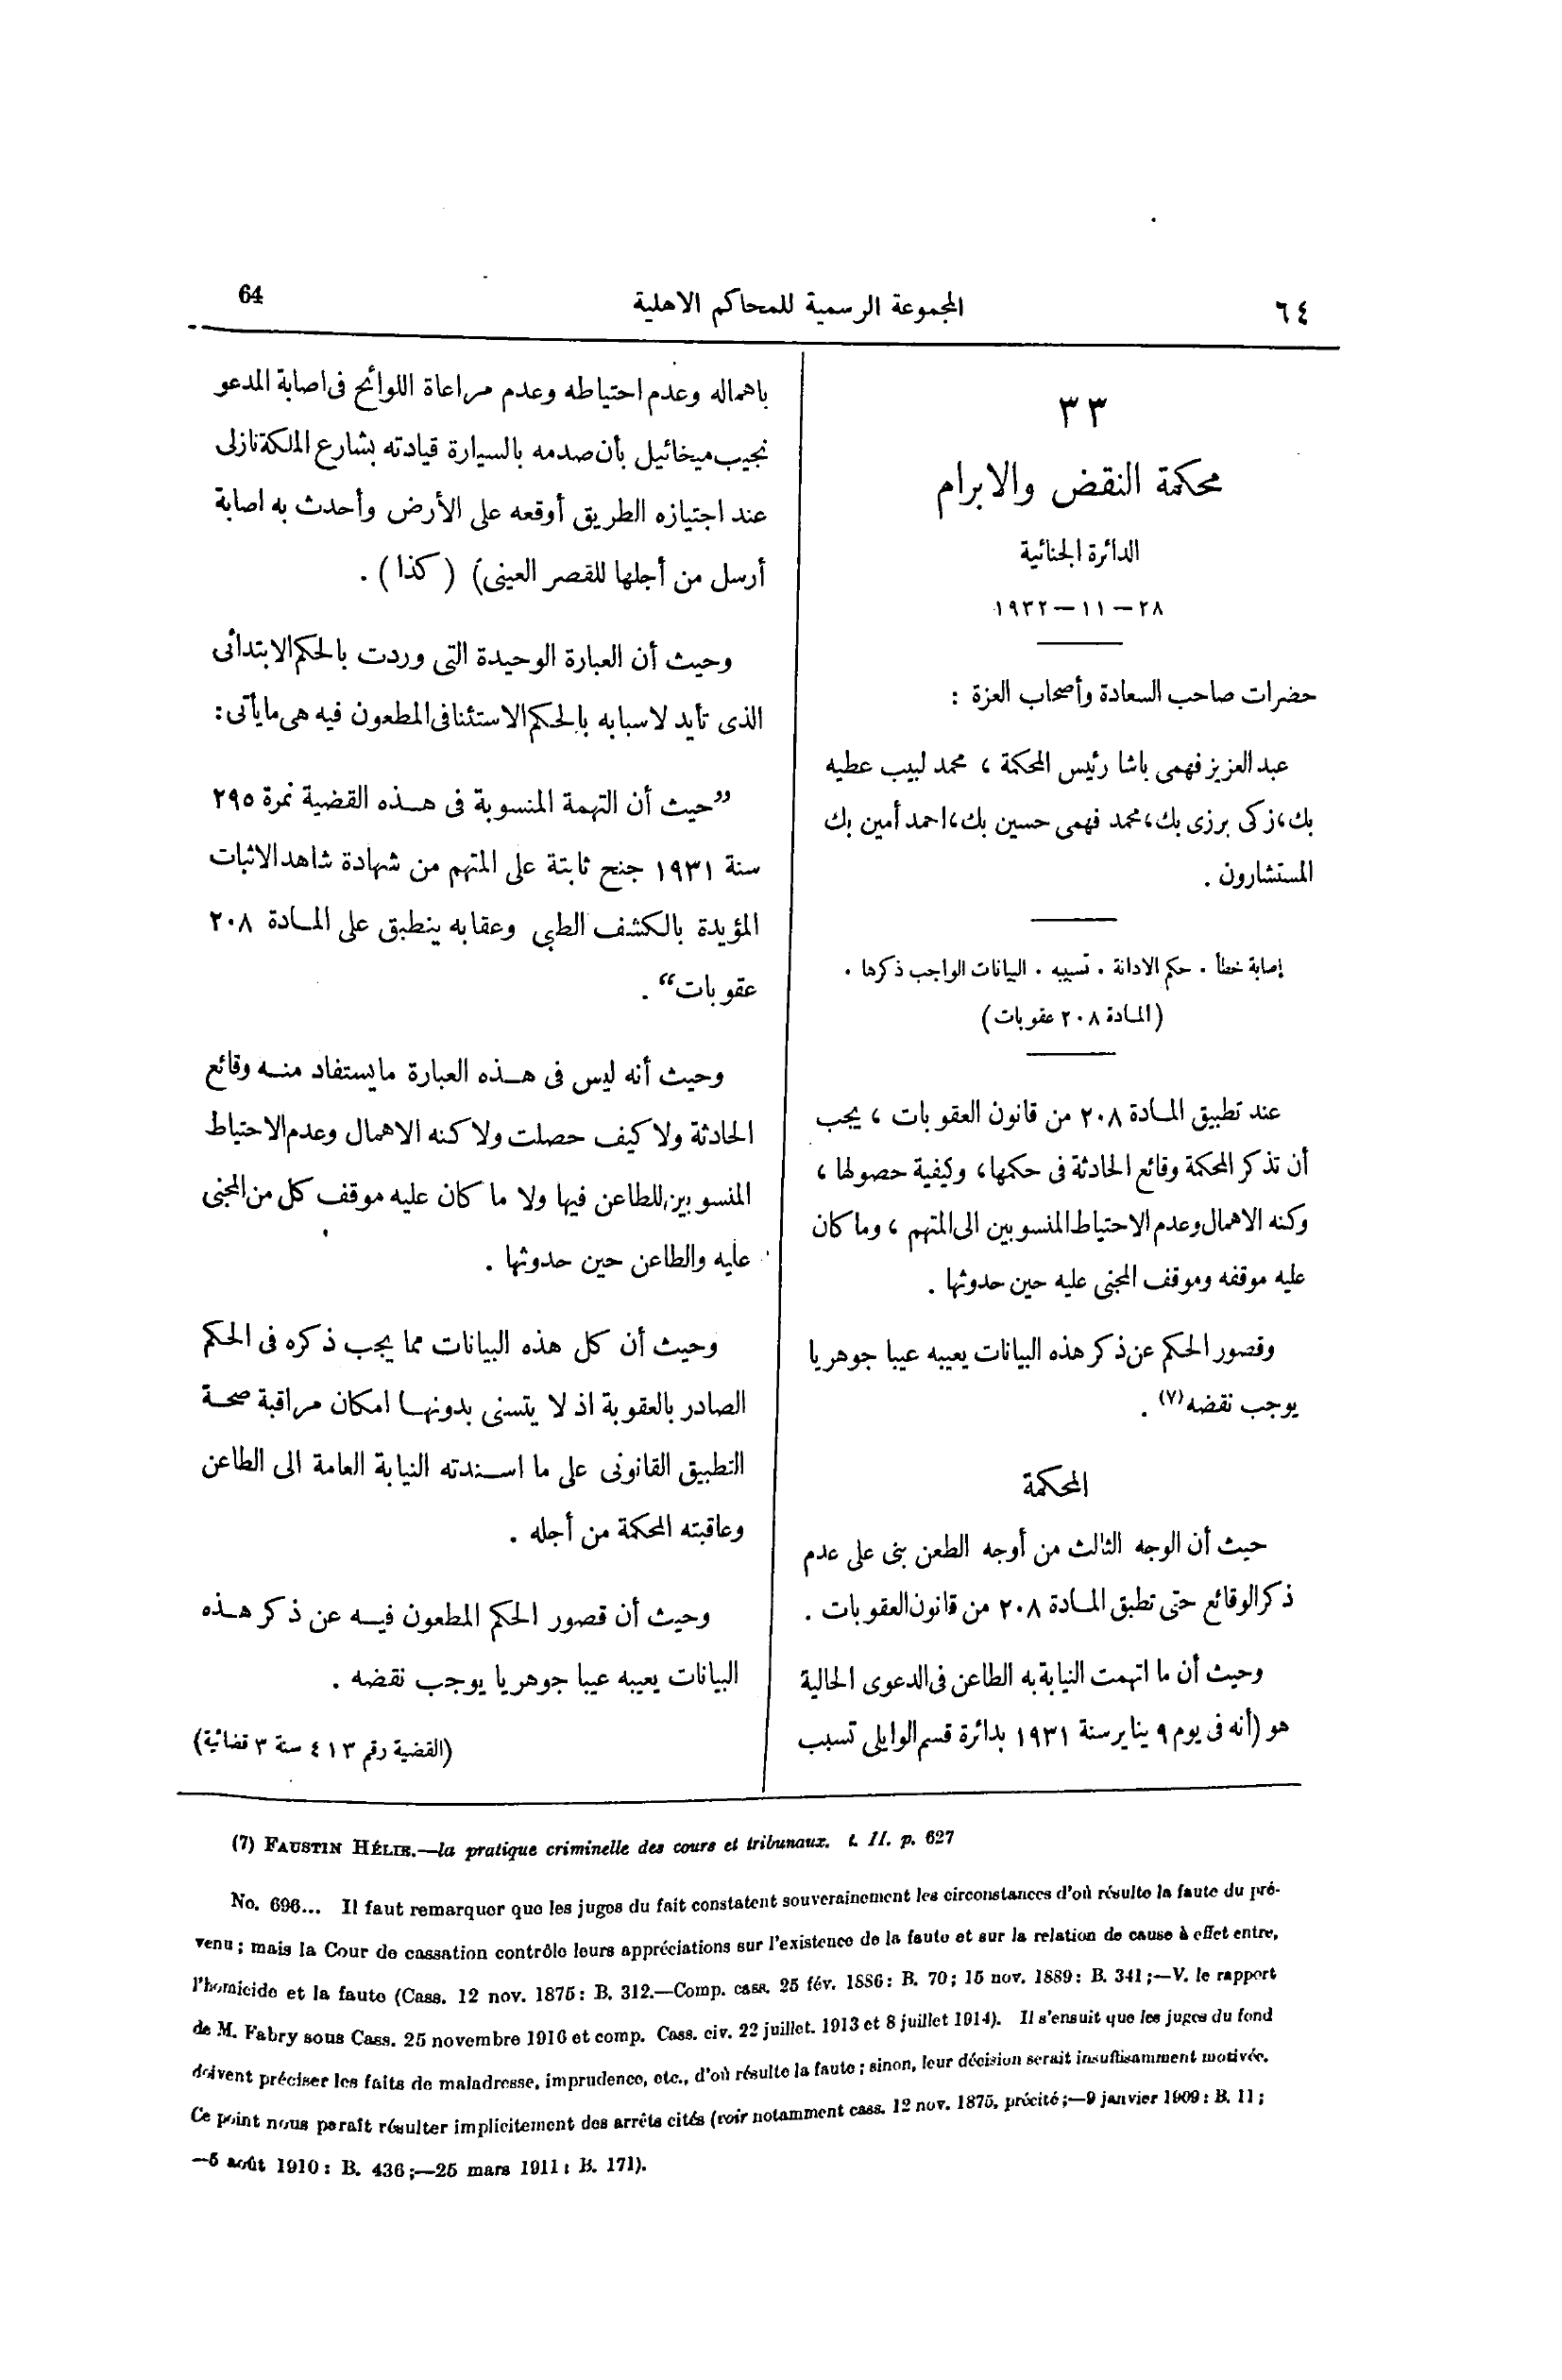 ٦٤
المجموعة الرسمية للمحاكم الاهلية
64
٣٣
محكمة النقض والابرام
الدائرة الجنائية
٢٨ — ١١ — ١٩٣٢
حضرات صاحب السعادة وأصحاب العزة :
عبد العزيز فهمى باشا رئيس المحكمة ، محمد لبيب عطيه
بك، زكى برزى بك، محمد فهمى حسين بك، احمد أمين بك
المستشارون .
إصابة خطأ . حكم الادانة . تسبيبه . البيانات الواجب ذكرها .
(المادة ٢٠٨ عقوبات)
عند تطبيق المادة ٢٠٨ من قانون العقوبات ، يجب
أن تذكر المحكمة وقائع الحادثة فى حكمها، وكيفية حصولها ،
وكنه الاهمال وعدم الاحتياط المنسوبين الى المتهم ، وما كان
عليه موقفه وموقف المجنى عليه حين حدوثها .
وقصور الحكم عن ذكر هذه البيانات يعيبه عيبا جوهريا
يوجب نقضه (٧) .
المحكمة
حيث أن الوجه الثالث من أوجه الطعن بنى على عدم
ذكر الوقائع حتى تطبق المادة ٢٠٨ من قانون العقوبات .
وحيث أن ما اتهمت النيابة به الطاعن فى الدعوى الحالية
هو (أنه فى يوم ٩ يناير سنة ١٩٣١ بدائرة قسم الوايلى تسبب
باهماله وعدم احتياطه وعدم مراعاة اللوائح فى اصابة المدعو
نجيب ميخائيل بأن صدمه بالسيارة قيادته بشارع الملكة نازلى
عند اجتيازه الطريق أوقعه على الأرض وأحدث به اصابة
أرسل من أجلها للقصر العينى) (كذا) .
وحيث أن العبارة الوحيدة التى وردت بالحكم الابتدائى
الذى تأيد لاسبابه بالحكم الاستئنافى المطعون فيه هى ما يأتى :
”حيث أن التهمة المنسوبة فى هذه القضية نمرة ٢٩٥
سنة ١٩٣١ جنح ثابتة على المتهم من شهادة شاهد الاثبات
المؤيدة بالكشف الطبى وعقابه ينطبق على المادة ٢٠٨
عقوبات“ .
وحيث أنه ليس فى هذه العبارة ما يستفاد منه وقائع
الحادثة ولا كيف حصلت ولا كنه الاهمال وعدم الاحتياط
المنسوبين للطاعن فيها ولا ما كان عليه موقف كل من المجنى
عليه والطاعن حين حدوثها .
وحيث أن كل هذه البيانات مما يجب ذكره فى الحكم
الصادر بالعقوبة اذ لا يتسنى بدونها امكان مراقبة صحة
التطبيق القانونى على ما اسندته النيابة العامة الى الطاعن
وعاقبته المحكمة من أجله .
وحيث أن قصور الحكم المطعون فيه عن ذكر هذه
البيانات يعيبه عيبا جوهريا يوجب نقضه .
(القضية رقم ٤١٣ سنة ٣ قضائية)
(7) FAUSTIN HÉLIE.—la pratique criminelle des cours et tribunaux. t. II. p. 627
No. 696... Il faut remarquer que les juges du fait constatent souverainement les circonstances d'où résulte la faute du pré-
venu ; mais la Cour de cassation contrôle leurs appréciations sur l'existence de la faute et sur la relation de cause à effet entre,
l'homicide et la faute (Cass. 12 nov. 1875 : B. 312.—Comp. cass. 25 fév. 1886 : B. 70 ; 15 nov. 1889 : B. 341 ;—V. le rapport
de M. Fabry sous Cass. 25 novembre 1916 et comp. Cass. civ. 22 juillet. 1913 et 8 juillet 1914). Il s'ensuit que les juges du fond
doivent préciser les faits de maladresse, imprudence, etc., d'où résulte la faute ; sinon, leur décision serait insuffisamment motivée.
Ce point nous paraît résulter implicitement des arrêts cités (voir notamment cass. 12 nov. 1875, précité ;—9 janvier 1909 : B. 11 ;
—5 août 1910 : B. 436 ;—25 mars 1911 : B. 171).